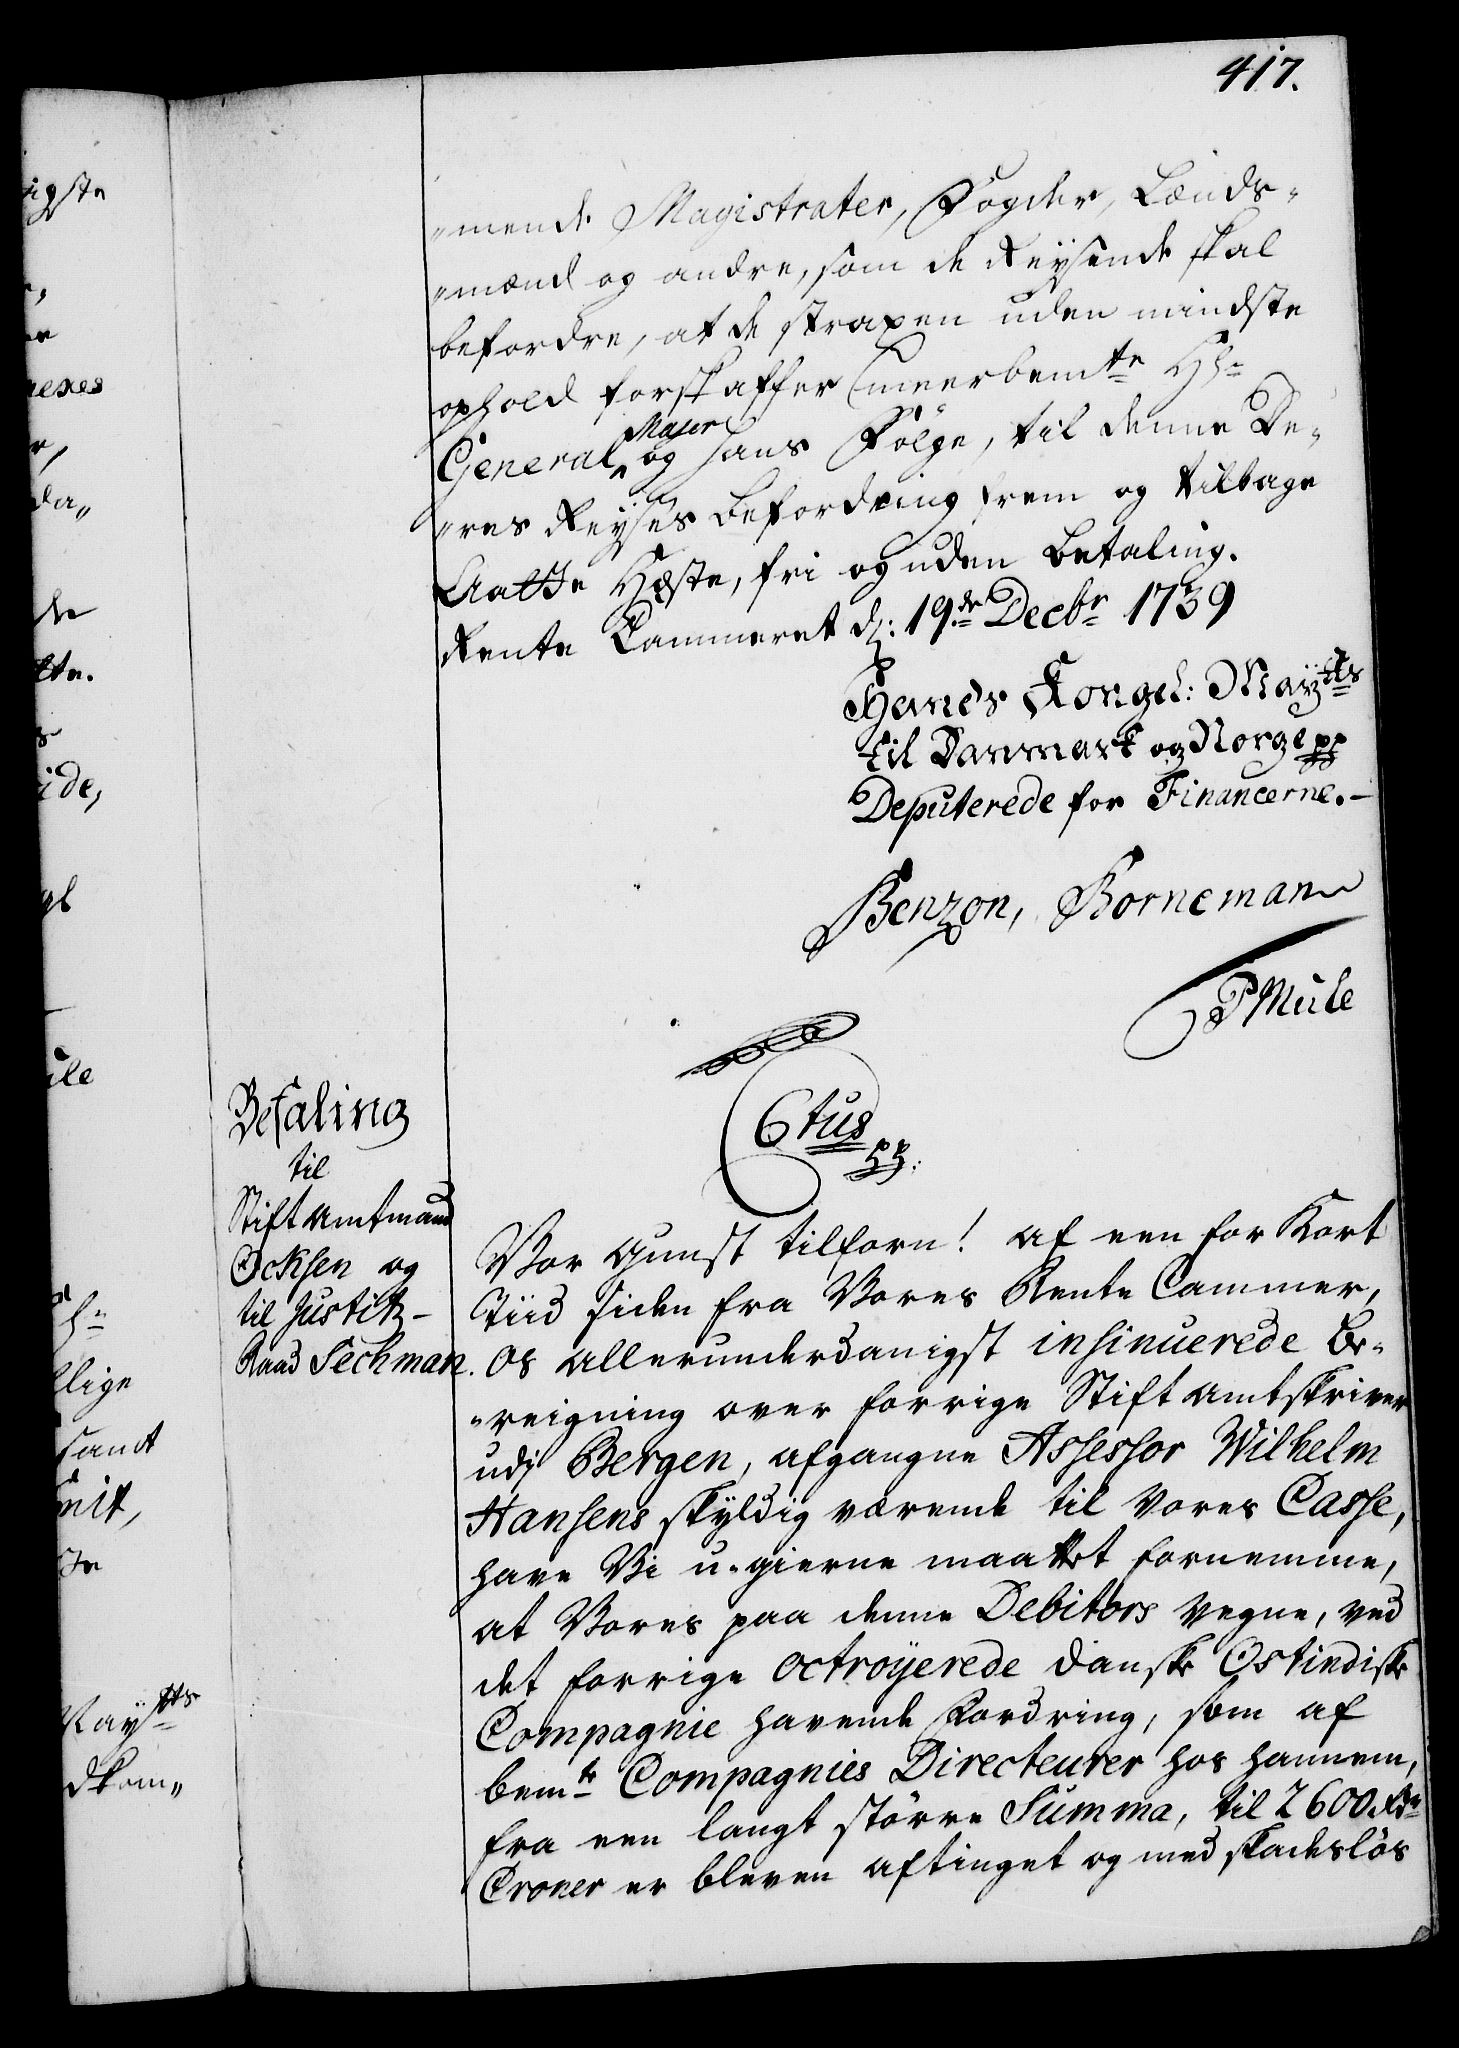 417.
"mende Magistrater, Fogder, Lænds-
"mænd og andre, som de Reysende skal
befordre, at de strapen uden mindste
ophold forskaffer meerbemte Hr
General Major og hans Følge, til denne De-
"res Reyses befordring frem og tilbage
Aatte Heste, fri og uden betaling.
Rente Cammeret d: 19de Decbr 1739
Hands Kongel: Maytts
til Danmark og Norge pp
Deputerede for Financerne.-
Benzon, Bornemann
P Mule
C6tus pp:
Befaling
til
Stiftamtmand
Ocksen og
til Justitz-
Raad Sechman.
Vor Gunst tilforn! Af een for Kort
Tiid siden fra Vores Rente Cammer,
Os allerunderdanigst insinuerede be-
"reigning over forrige Stiftamtskriver
udj Bergen, afgangne Assessor Wilhelm
Hansens skyldig værende til Vores Casse,
have Vi u-gierne maattet fornemme,
at Vores paa denne Debitors Vegne, ved
det forrige octroyerede danske Ostindiske
Compagnie havende Fordring, som af
bemte Compagnies Directeurer hos hannem,
fra een langt større Summa, til 2600 Rdr
Croner er bleven aftinget og med skadesløs